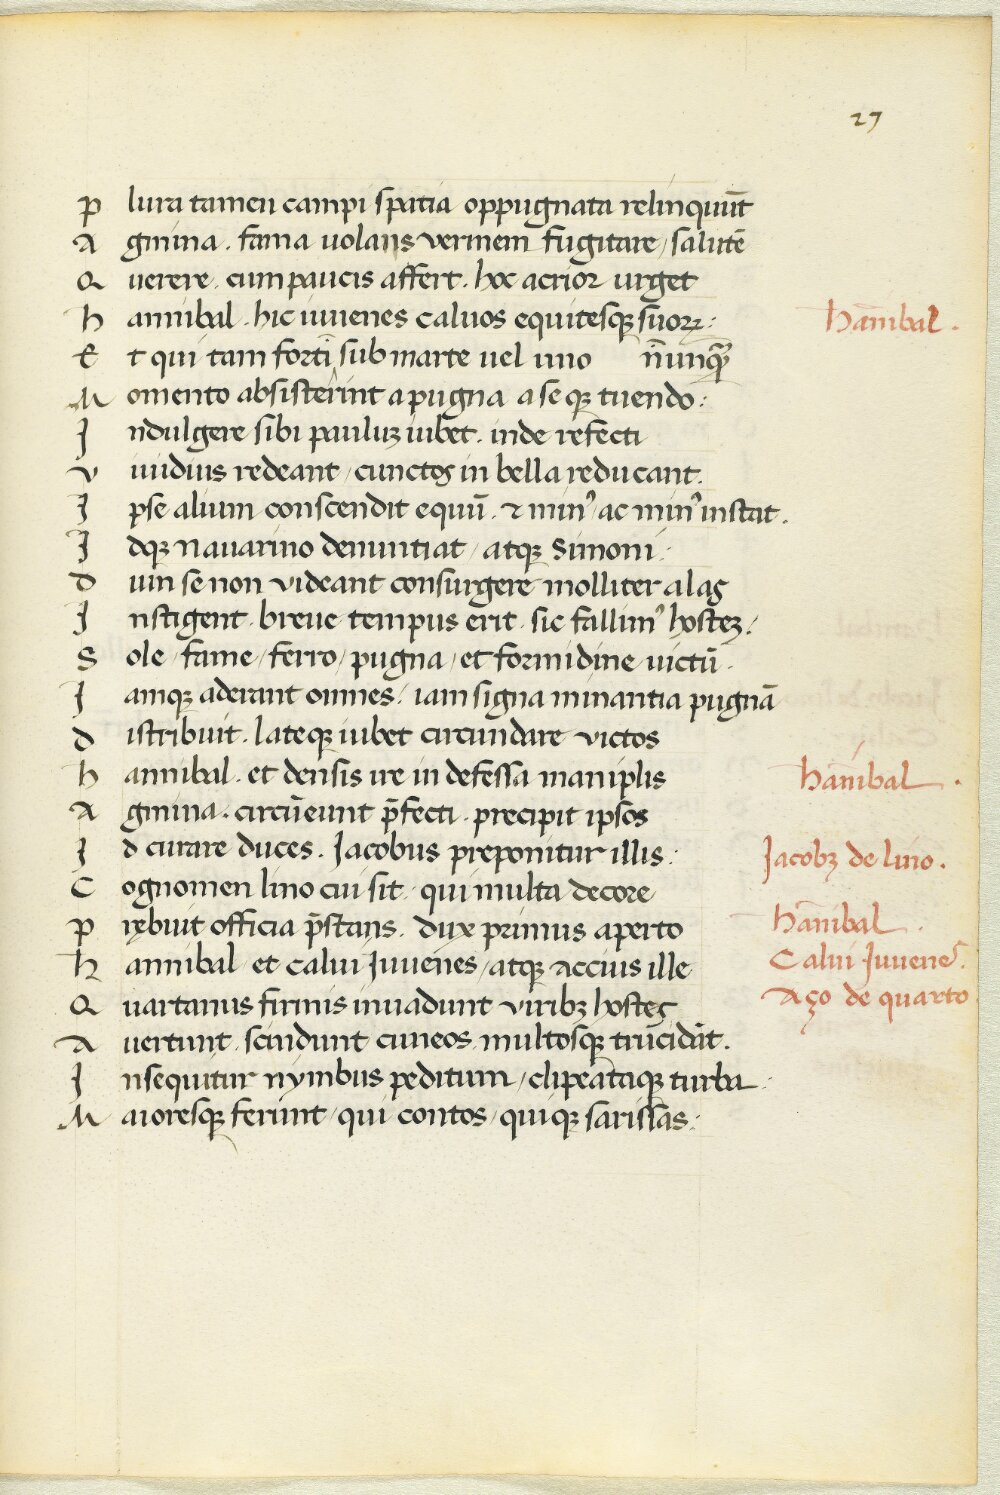 27
P lura tamen campi spatia oppugnata relinquūt
A gmina . fama uolans vermem fugitare / salutē
Q uerere . cum paucis affert . hoc acrior urget
h annibal . hic iuuenes caluos equitesqȝ suoꝝ :
hānibal .
E t qui tam forti sub marte uel uno n̄unqȝ̄
M omento absisterint a pugna a se qȝ tuendo :
I ndulgere sibi pauluȝ iubet . inde refecti
V iuidius redeant / cunctos in bella reducant .
I pse alium conscendit equū . ⁊ minꝰ ac minꝰ instat .
I dqȝ Nauarino denuntiat / atqȝ Simoni .
D um se non videant consurgere molliter alas
I nstigent . breue tempus erit . sic fallimꝰ hosteȝ :
S ole / fame / ferro / pugna / et formidine uictū .
I amqȝ aderant omnes . iam signa minantia pugnā
D istribuit . lateqȝ iubet circundare victos
h annibal . et densis ire indefessa maniplis
hānibal .
A gmina . circūeunt p̄fecti . precipit ipsos
I d curare duces . Jacobus preponitur illis :
Jacobȝ de lino .
C ognomen lino cui sit . qui multa decore
P rębuit officia p̄stans . dux primus aperto
hānibal .
h annibal et calui Juuenes / atqȝ Accius ille
Calui Juuenes .
Q uartanus firmis inuadunt viribȝ hostes
Aço de quarto
A uertunt . scindunt cuneos . multosqȝ trucidāt .
I nsequitur nymbus peditum / clipeataqȝ turba .
M aioresqȝ ferunt / qui contos / quiqȝ sarissas .